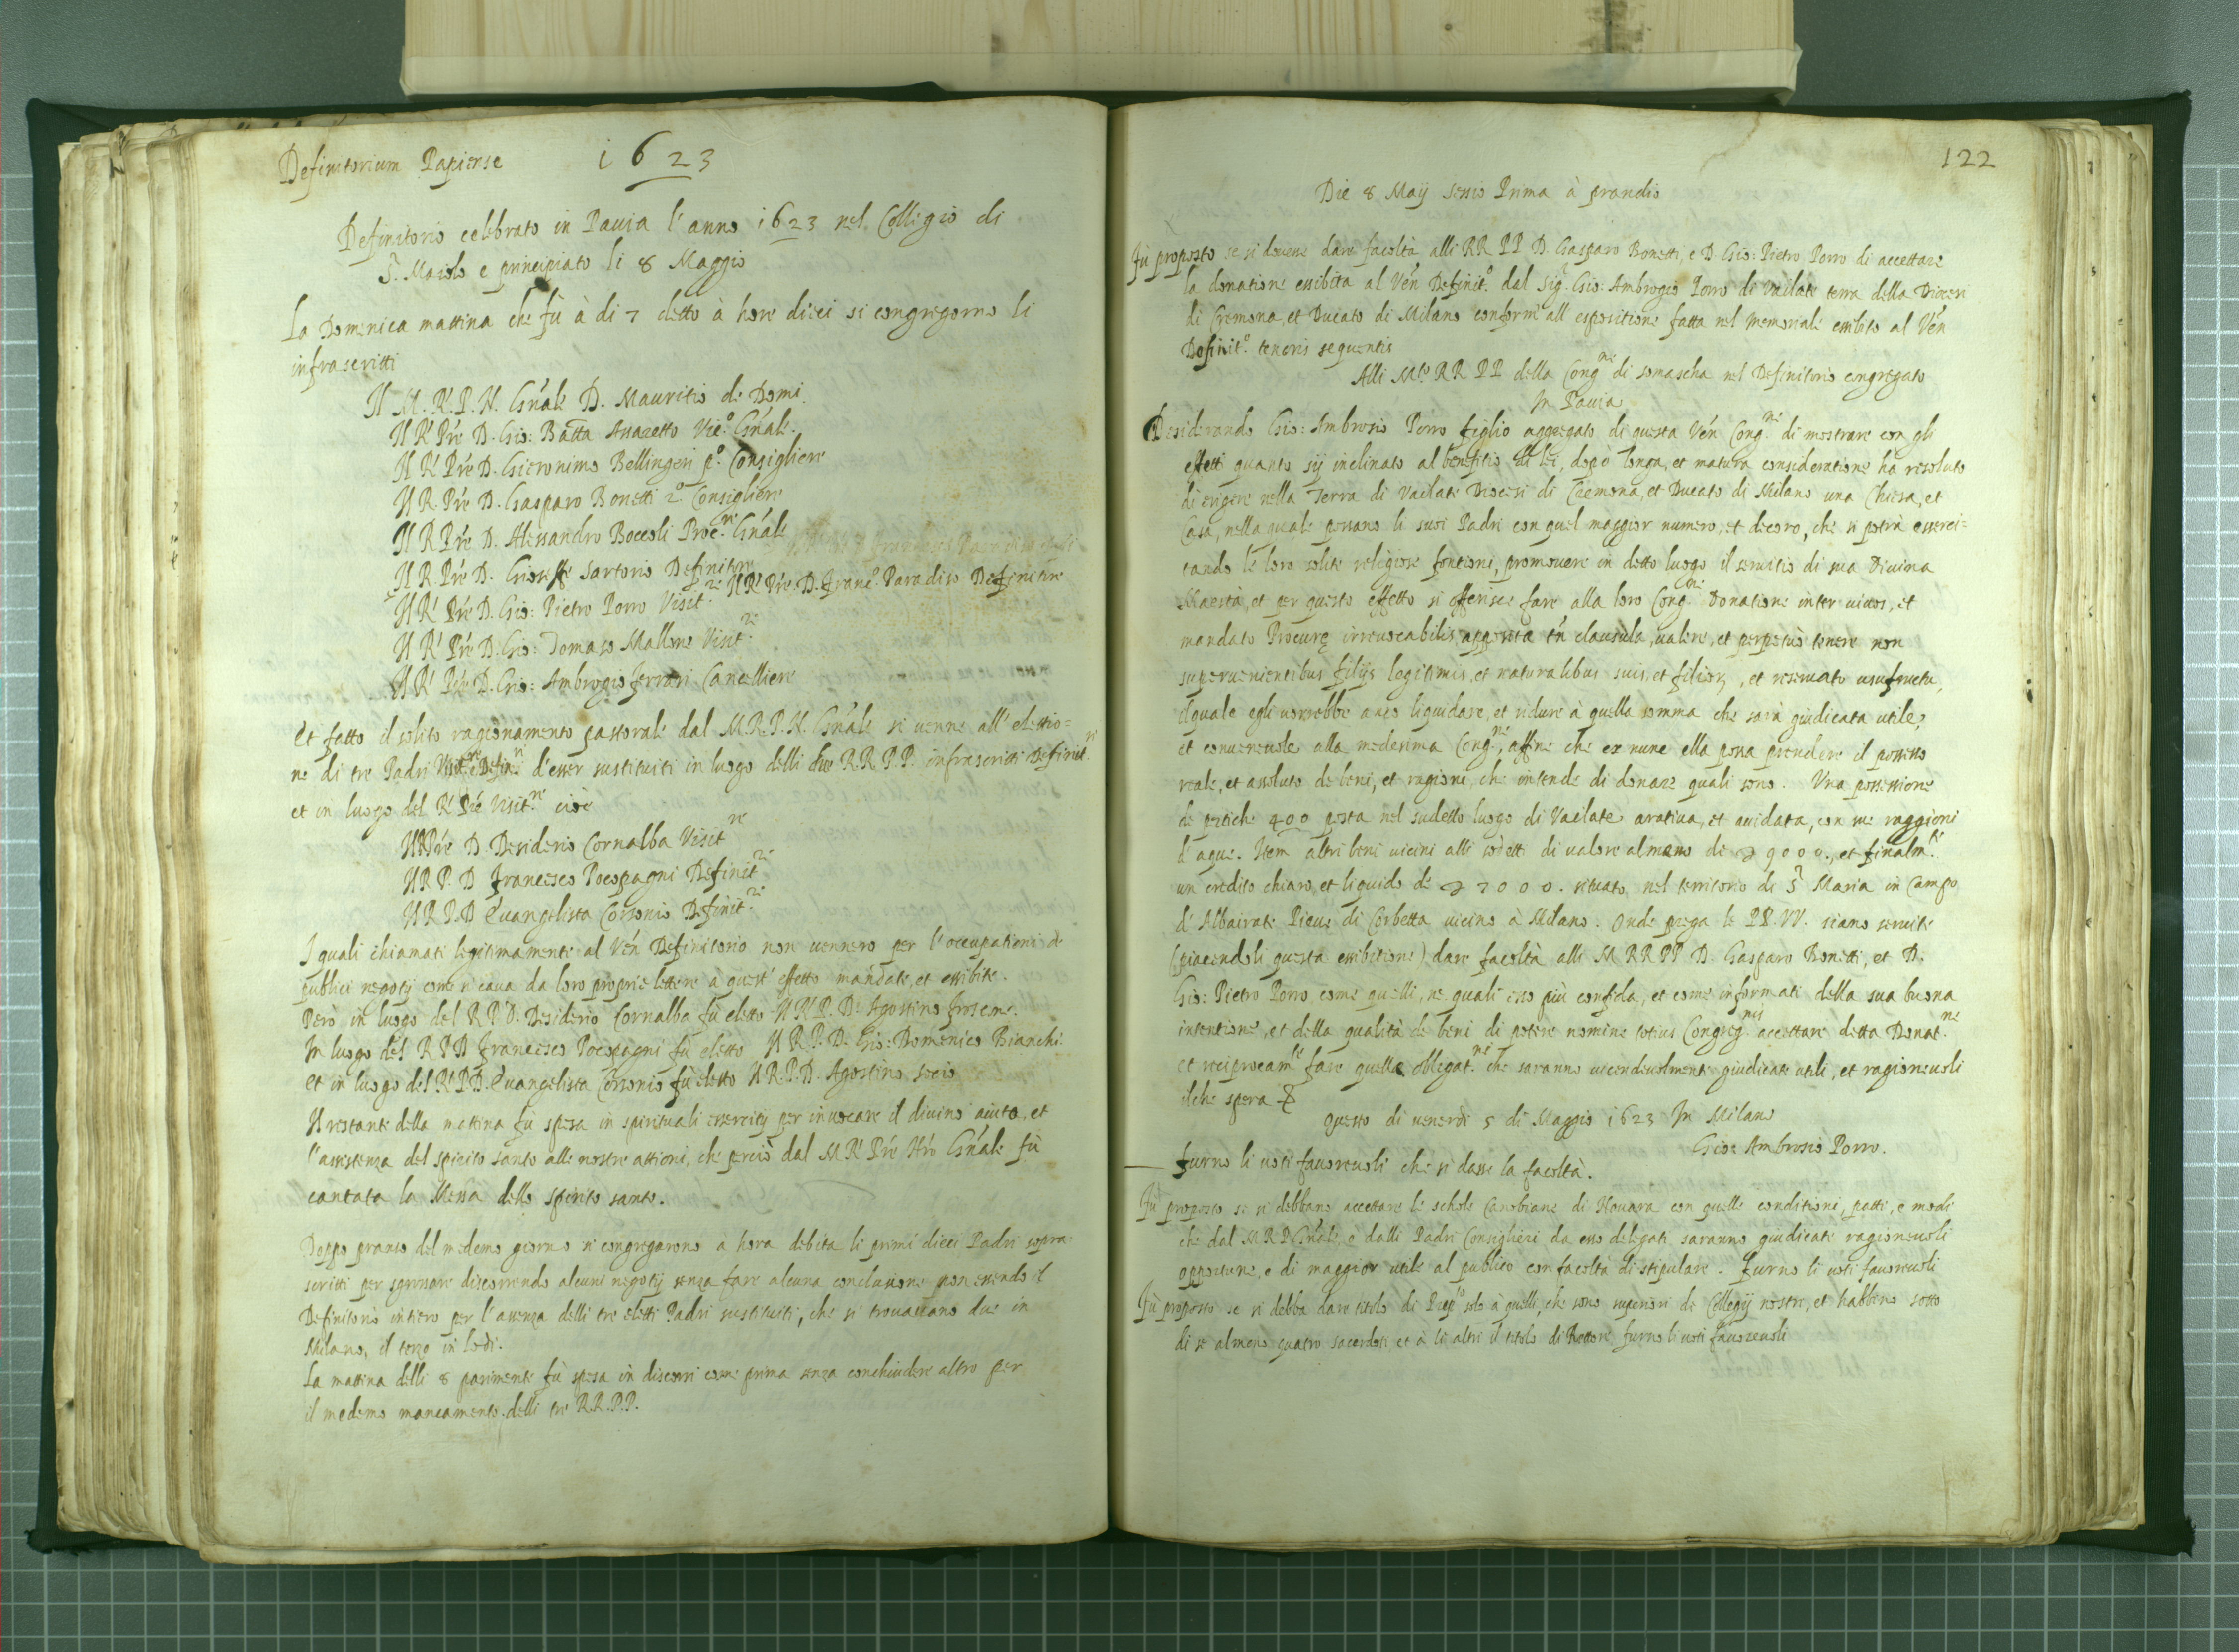 Definitorium Papiense 1623
Definitorio celebrato in Pauia l'anno 1623 nel Colligio di
S. Maiolo e principiato li 8 Maggio
La Domenica mattina che fù à di 7 detto à hore dieci si congregorno li
infrascritti
Il M. R. P. N. Gn'ale D. Mauritio de Domi.
Il R. P're D. Gio: Batta Assaretto Vic.º Gn'ale.
Il R. P're D. Gieronimo Bellingeri p.º Consigliere
Il R. P're D. Gasparo Bonetti 2.º Consigliere
Il R P're D. Alessandro Boccoli Proc.re Gn'ale
Il R. P're D. Gioseffe Sartorio Definitore
Il R. P're D. Gio: Pietro Porro Visit.re Il R. P're D. Franc.º Paradiso Definitore
Il R. P're D. Gio: Tomaso Mallone Visit.re
Il R. P're D. Gio: Ambrogio Ferrari Cancelliere
Et fatto il solito ragionamento pastorale dal M.R.P.N. Gn'ale si venne all'elettio=
ne di tre Padri d'esser sustituiti in luogo delli due R.R.P.P. infrascritti Definit.ri
et in luogo del R. P're Visit.re cioè
Il R P're D. Desiderio Cornalba Visit.re
Il R P. D Francesco Pocopagni Definit.re
Il R P. D Euangelista Corsonio Definit.re
I quali chiamati legitimamente al Ven Definitorio non uennero per l'occupationi de
publici negotij come si caua da loro proprie lettere à quest'effetto mandate, et essibite.
Però in luogo del R P D. Desiderio Cornalba fù eletto Il R. P. D. Agostino Froscone.
In luogo del R P D Francesco Pocopagni fù eletto Il R. P. D. Gio: Domenico Bianchi
et in luogo del R. P. D. Euangelista Corsonio fù eletto Il R. P. D. Agostino Socio
Il restante della mattina fù spesa in spirituali essercitij per inuocare il diuino aiuto, et
l'assistenza del spirito santo alle nostre attioni, che perciò dal M R. P're N'ro Gn'ale fù
cantata la Messa dello spirito santo.
Doppo pranso del medemo giorno si congregarono à hora debita li primi dieci Padri sopra=
scritti per discorrendo alcuni negotij senza fare alcuna conclusione non essendo il
Definitorio intiero per l'assenza delli tre eletti Padri sustituiti, che si trouauano due in
Milano, il terzo in Lodi.
La mattina delli 8 parimente fù spesa in discorsi come prima senza conchiudere altro per
il medemo mancamento delli tre R.R.P.P.
122
Die 8 Maij Sessio Prima à prandio
Fù proposto se si douesse dare facoltà alli RR PP D. Gasparo Bonetti, e D. Gio: Pietro Porro di accettare
la donatione essibita al Ven Definit.º dal Sig. Gio: Ambrogio Porro di Vailate terra della Diocesi
di Cremona, et Ducato di Milano conforme all'espositione fatta nel memoriale essibito al Ven
Definit.º tenoris sequentis
Alli M.to RR PP della Cong.ne di somascha nel Definitorio congregato
In Pauia
Desiderando Gio: Ambrosio Porro figlio aggregato di questa Ven Cong.ne di mostrare con gli
effetti quanto sij inclinato al benefitio di lei, dopo longa, et matura consideratione ha risoluto
di erigere nella Terra di Vailate Diocesi di Cremona, et Ducato di Milano una Chiesa, et
Casa, nella quale possano li suoi Padri con quel maggior numero, et decoro, che si potrà esserci=
tando le loro solite religiose fontioni, promouere in detto luogo il seruitio di sua Diuina
Maestà, et per questo effetto si offerisce fare alla loro Cong.ne Donatione inter uiuos, et
mandato Procurę irreuocabilis, apposita tn clausula, ualere, et perpetuò tenere non
superuenientibus filijs legitimis, et naturalibus suis, et filior, et reseruato usufructu,
ilquale egli uorrebbe anco liquidare, et ridure à quella somma che sarà giudicata utile,
et conueneuole alla medesima Cong.ne, affine che ex nunc ella possa prendere il possesso
reale, et assoluto de beni, et ragioni, che intende di donare quali sono. Vna possessione
de pertiche 400 posta nel sudetto luogo di Vailate aratiua, et auidata, con sue raggioni
d'aque. Item altri beni uicini alli sodetti di ualore almeno de 9000., et finalm.te
un credito chiaro, et liquido de 7000. situato nel territorio de S. Maria in Campo
d'Albairate Pieue di Corbetta uicino à Milano. Onde prega le PP. VV. siano seruite
(piacendoli questa essibitione) dare facoltà alli M RR PP D. Gasparo Bonetti, et D.
Gio: Pietro Porro come quelli, ne quali esso più confida, et come informati della sua buona
intentione, et della qualità de beni di potere nomine totius Congreg.nis accettare detta Donat.ne
et reciprocam.te fare quelle obligat.ni che saranno uicendeuolmente giudicate utili, et ragioneuoli
ilche spera
Questo di uenerdi 5 di Maggio 1623 In Milano
Gio: Ambrosio Porro.
furno li uoti fauoreuoli che si dasse la facoltà.
Fù proposto se si debbano accettare le schole Canobiane di Nouara con quelle conditioni, patti, e modi
che dal M R P Gn'ale, ò dalli Padri Consiglieri da esso delegati saranno giudicate ragioneuoli
opportune, e di maggior utile al publico con facoltà di stipulare. Furno li uoti fauoreuoli
Fù proposto se si debba dare titolo di Prep.to solo à quelli, che sono superiori de Collegij nostri, et habbino sotto
di se almeno quatro sacerdoti et à li altri il titolo di Rettore, furno li uoti fauoreuoli